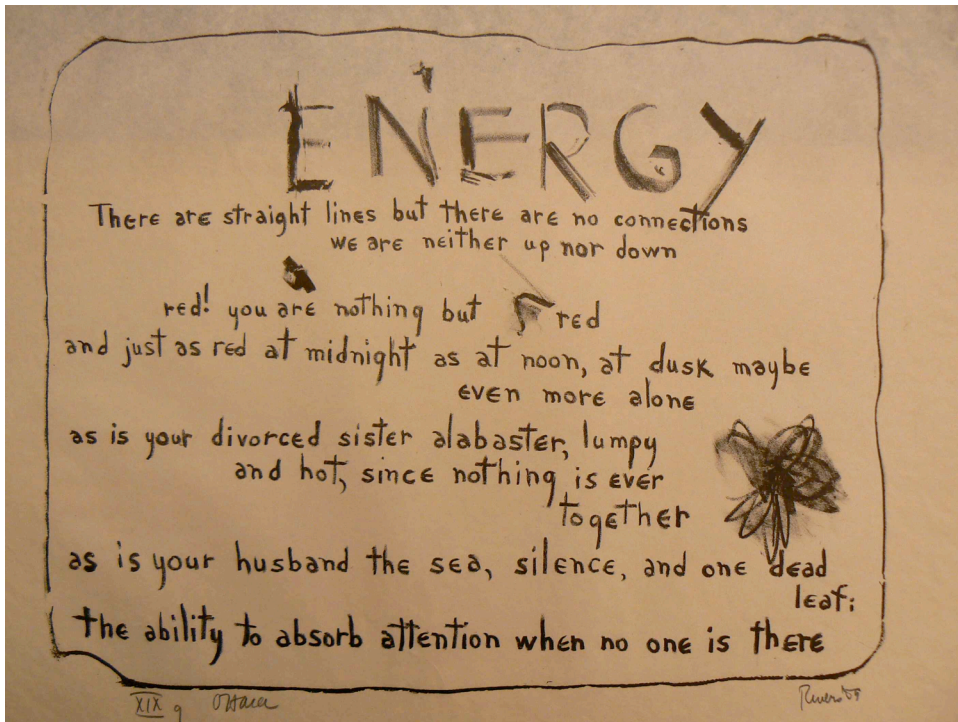 ENERGY
There are straight lines but there are no connections
we are neither up nor down
red! you are nothing but red
and just as red at midnight as at noon, at dusk maybe
even more alone
as is your divorced sister alabaster, lumpy
and hot, since nothing is ever
together
as is your husband the sea, silence, and one dead
leaf:
the ability to absorb attention when no one is there
XIX 9 O'Hara Rivers 59